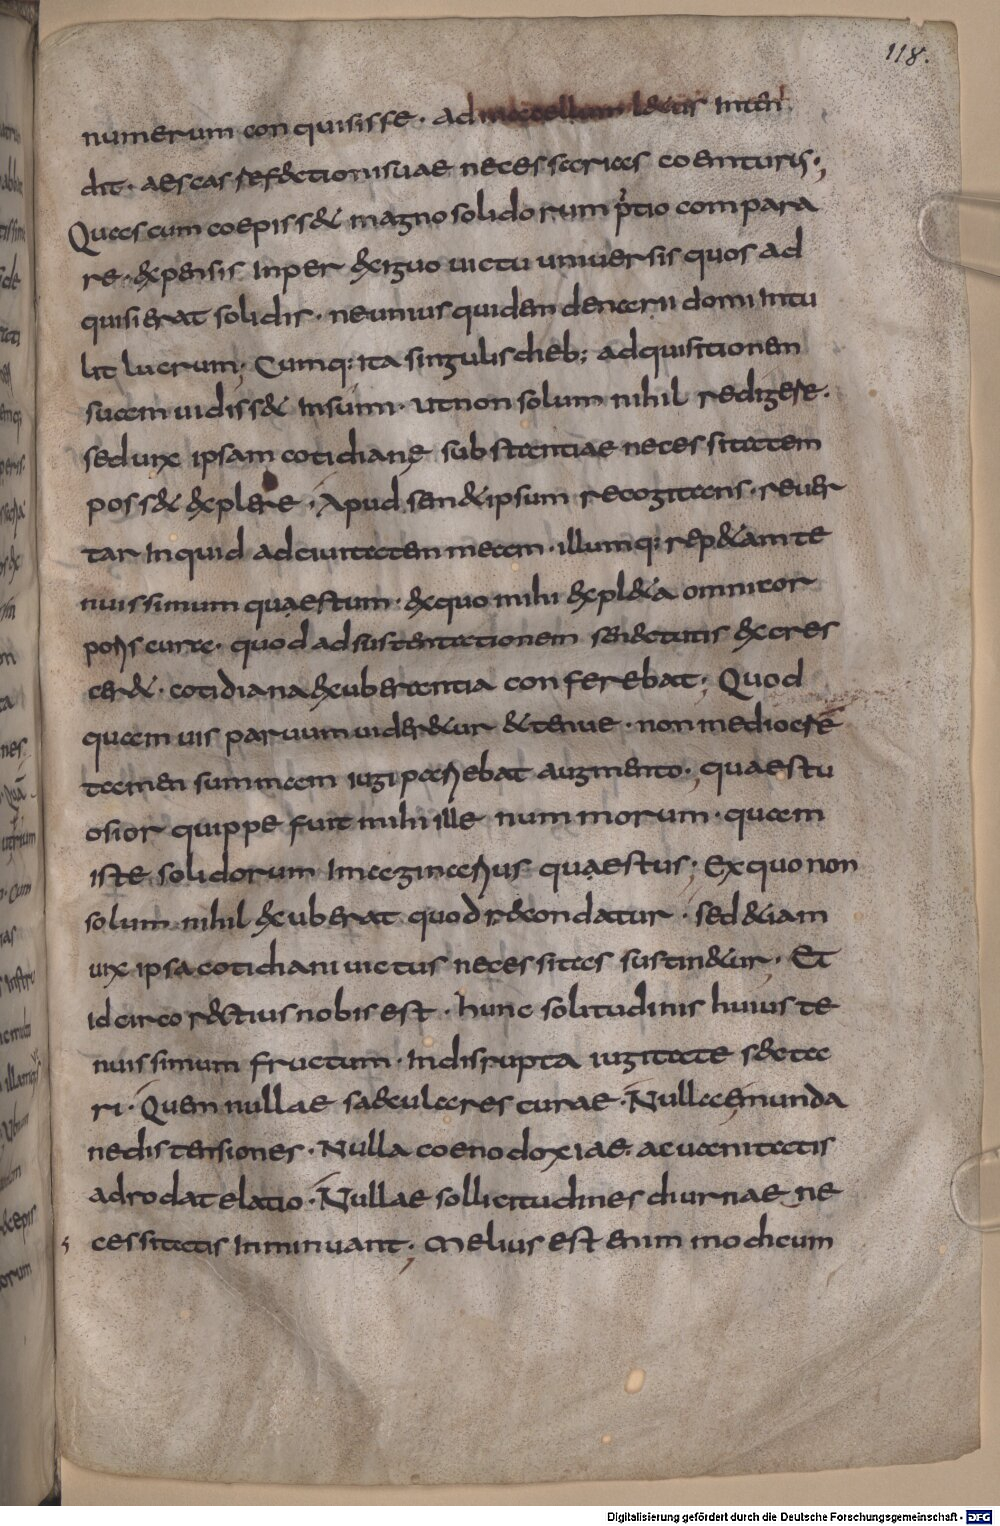 118.
numerum conquisisse · ad macellum laetus inten
dit · aescas refectionis suae necessarias coemturis ·,
Quas cum coepisset magno solidorum p̄tio compara
re · expensis inper exiguo uictu uniuersis quos ad
quisierat solidis · ne unius quidem denarii domi intu
lit lucrum; Cumq: ita singulis dieb; adquisitionem
suam uidisset insumi · ut non solum nihil redigere ·
sed uix ipsam cotidianę substantiae necessitatem
posset explere · Apud semetipsum recogitans · reuer
tar inquid ad ciuitatem meam · illumq: repetam te
nuissimum quaestum · ex quo mihi expleta omni cor
poris cura · quod ad sustentationem senectutis excres
ceret · cotidiana exuberantia conferebat; Quod
quam uis paruum uideretur et tenue · non mediocre
tamen summam iugi pariebat augmento ·, quaestu
osior quippe fuit mihi ille nummorum · quam
iste solidorum imaginarius quaestus; Ex quo non
solum nihil exuberat quod recondatur · sed etiam
uix ipsa cotidiani uictus necessitas sustinetur · Et
idcirco rectius nobis est · hunc solitudinis huius te
nuissimum fructum · indisrupta iugitate secta
ri · Quem nullae saeculares curae · Nulla emunda
ne distensiones · Nulla coenodoxiae · ac uanitatis
adrodat elatio · Nullae sollicitudines diurnae ne
cessitatis inminuant ·, Melius est enim modicum
Digitalisierung gefördert durch die Deutsche Forschungsgemeinschaft - DFG